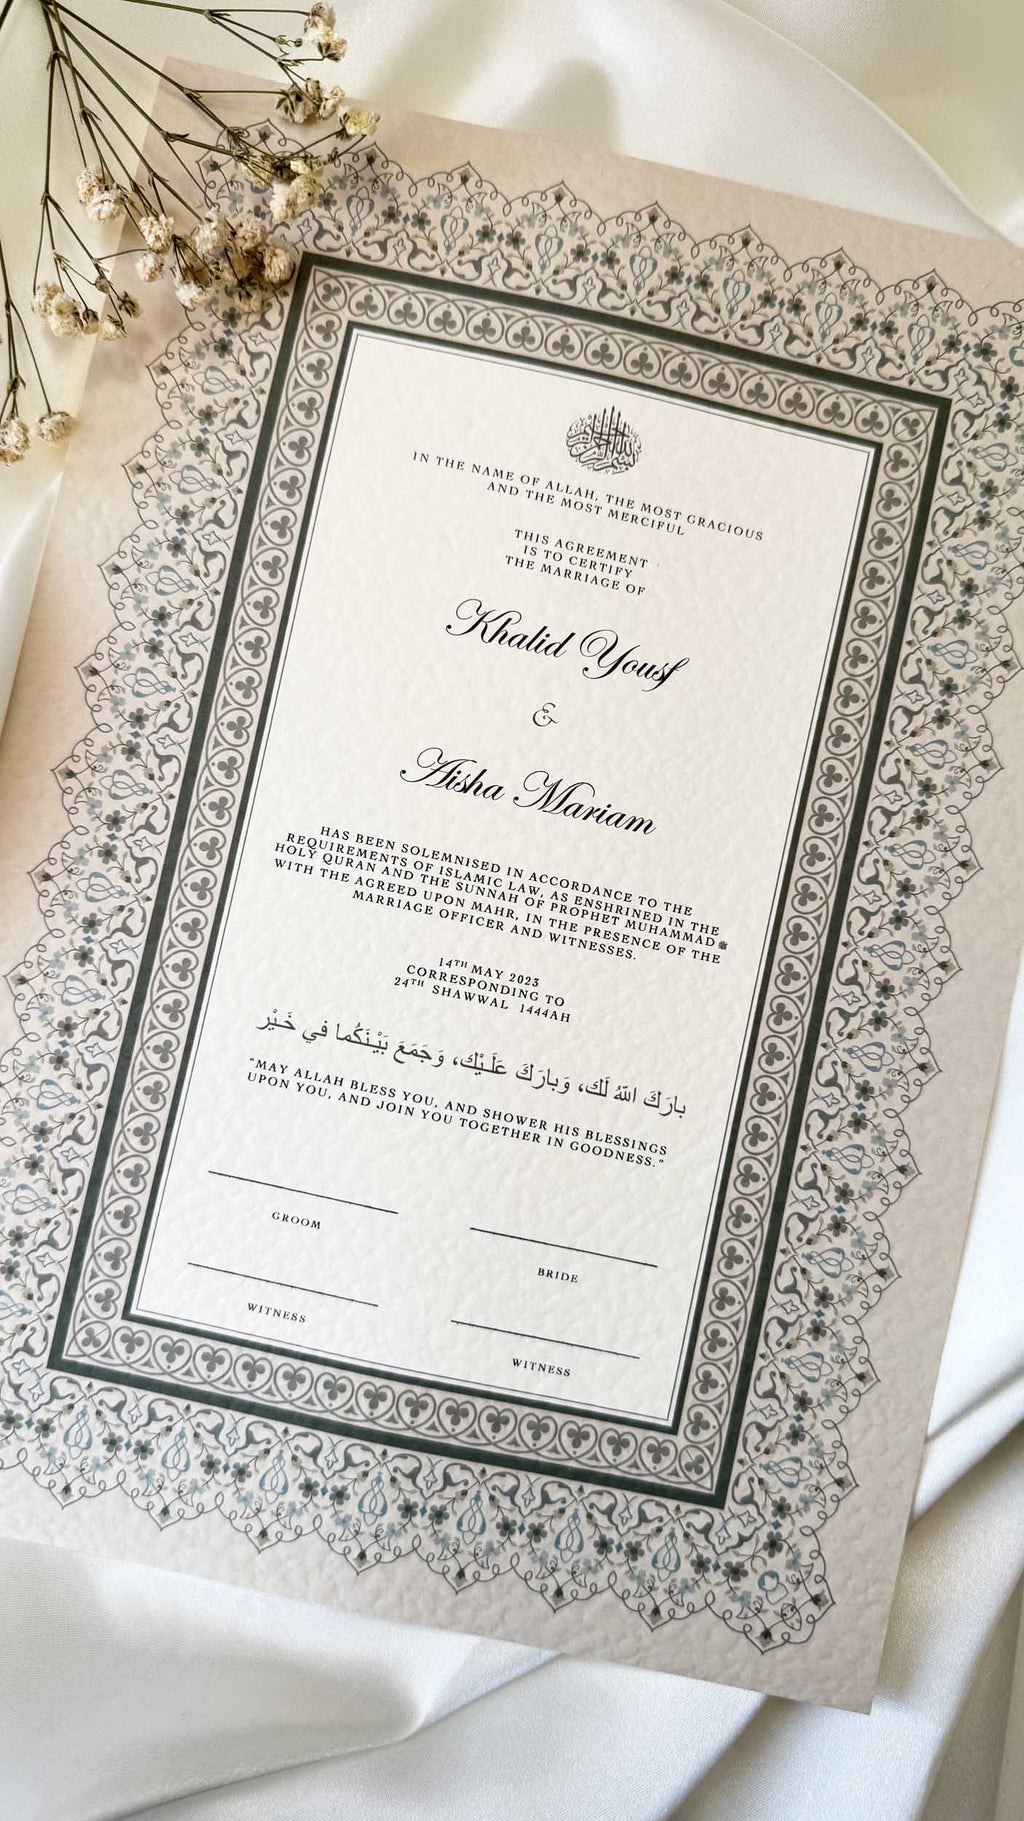 بسم الله الرحمن الرحيم
IN THE NAME OF ALLAH, THE MOST GRACIOUS
AND THE MOST MERCIFUL
THIS AGREEMENT
IS TO CERTIFY
THE MARRIAGE OF
Khalid Yousf
&
Aisha Mariam
HAS BEEN SOLEMNISED IN ACCORDANCE TO THE
REQUIREMENTS OF ISLAMIC LAW, AS ENSHRINED IN THE
HOLY QURAN AND THE SUNNAH OF PROPHET MUHAMMAD ﷺ
WITH THE AGREED UPON MAHR, IN THE PRESENCE OF THE
MARRIAGE OFFICER AND WITNESSES.
14TH MAY 2023
CORRESPONDING TO
24TH SHAWWAL 1444AH
بارَكَ اللهُ لَك، وَبارَكَ عَلَـيْك، وَجَمَعَ بَيْـنَكُما في خَـيْر
"MAY ALLAH BLESS YOU, AND SHOWER HIS BLESSINGS
UPON YOU, AND JOIN YOU TOGETHER IN GOODNESS."
GROOM
BRIDE
WITNESS
WITNESS